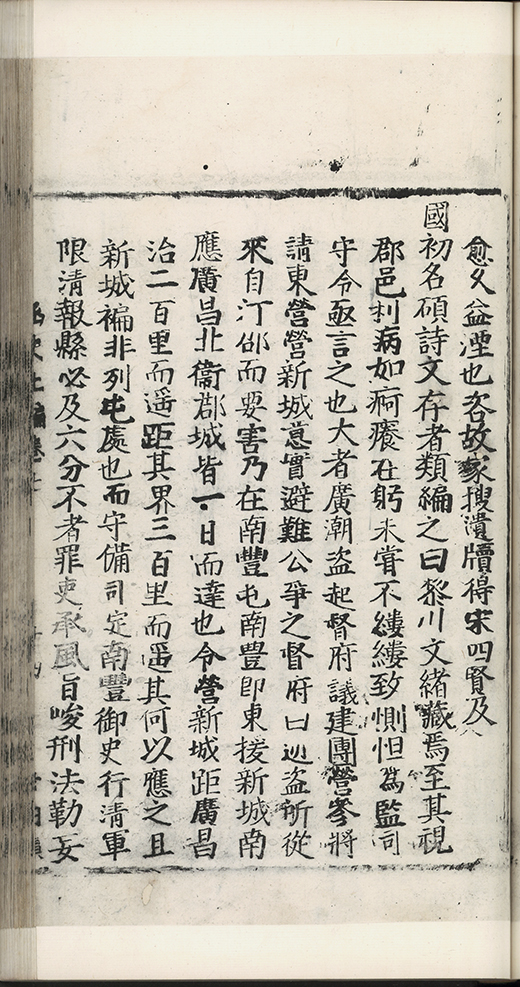 愈久益湮也咨故家搜遺牘得宋四賢及
國初名碩詩文存者類編之曰黎川文緒藏焉至其視
郡邑利病如痾癢在躬未嘗不縷縷致惻怛為監司
守令亟言之也大者廣潮盜起督府議建團營參將
請東營營新城意實避難公爭之督府曰巡盜所從
來自汀邵而要害乃在南豐屯南豐即東援新城南
應廣昌北衞郡城皆一日而達也令營新城距廣昌
治二百里而遥距其界三百里而遥其何以應之且
新城褊非列屯處也而守備司定南豐御史行清軍
限清報縣必及六分不者罪吏承風旨峻刑法勒妄